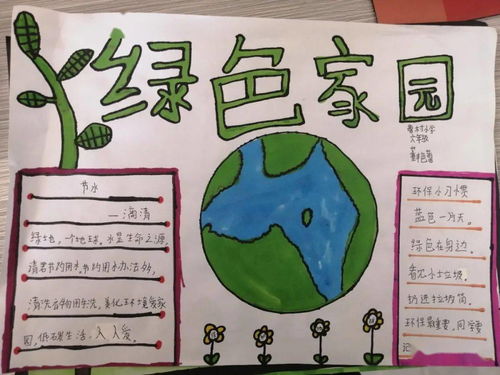 绿色家园
六年级
节水
一滴清
绿地，一个地球。水是生命之源，
请君节约用水。节约用水办法多，
清洗衣物用
美化环境爱家
园，低碳生活，人人爱。
环保小习惯
蓝色一片天。
绿色在身边。
看见小垃圾。
扔进垃圾筒。
环保最重要，同学要
记